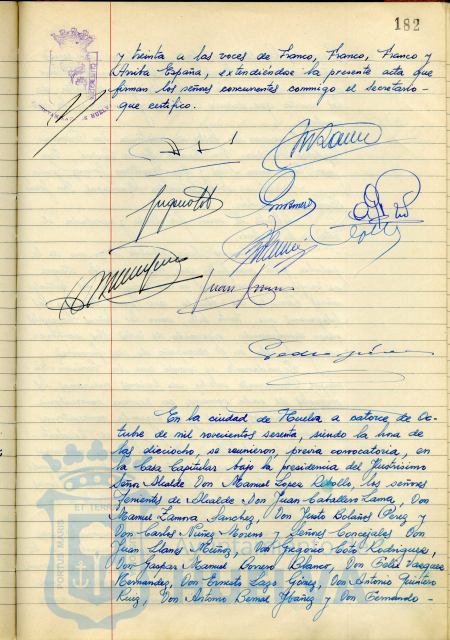 182
y treinta a las voces de Franco, Franco, Franco y
Arriba España, extendiéndose la presente acta que
firman los señores concurrentes conmigo el secretario-
que certifico.
Juan
Pedro
En la ciudad de Huelva a catorce de Oc-
tubre de mil novecientos setenta, siendo la hora de
las dieciocho, se reunieron, previa convocatoria, en
la Casa Capitular bajo la presidencia del Ilustrísimo
Señor Alcalde Don Manuel López Rebollo, los señores
Tenientes de Alcalde Don Juan Caballero Lama, Don
Manuel Zamora Sanchez, Don Justo Bolaños Perez y
Don Carlos Nuñez Moreno y Señores Concejales Don
Juan Llanes Muñoz, Don Gregorio Soto Rodriguez,
Don Gaspar Manuel Borrero Blanco, Don Felix Vazquez
Hernandez, Don Ernesto Lazo Gómez, Don Antonio Quintero
Ruiz, Don Antonio Bernal Ybañez y Don Fernando -